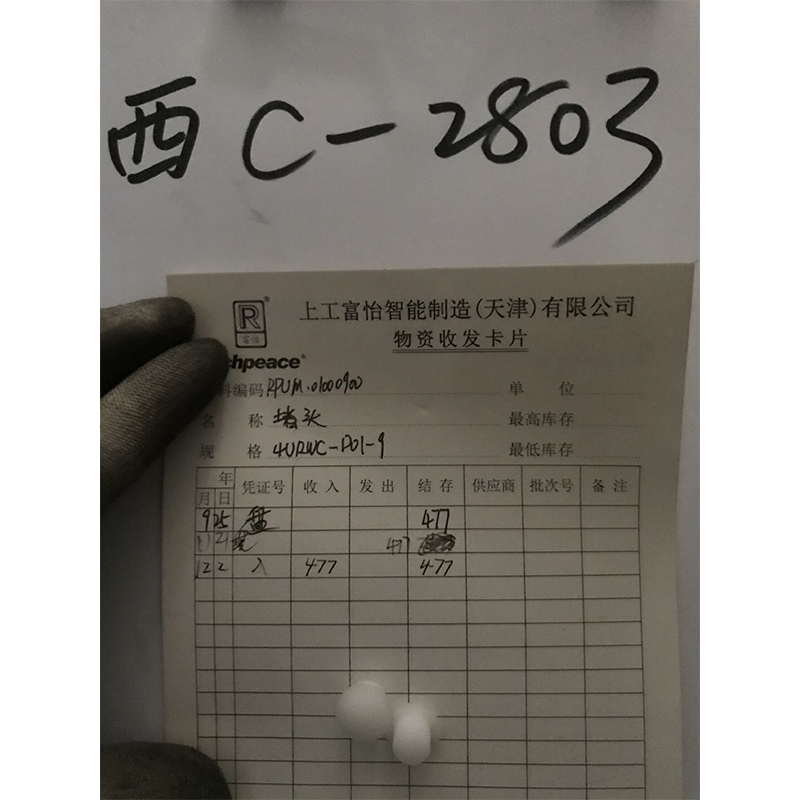 西C-2803
R®
富怡
上工富怡智能制造(天津)有限公司
物资收发卡片
chpeace®
料编码 RPUM.01000900 单 位
名 称 堵头 最高库存
规 格 4URWC-P01-9 最低库存
年
月 日 凭证号 收入 发出 结存 供应商 批次号 备注
9 25 盘 477
21 477
12 2 入 477 477